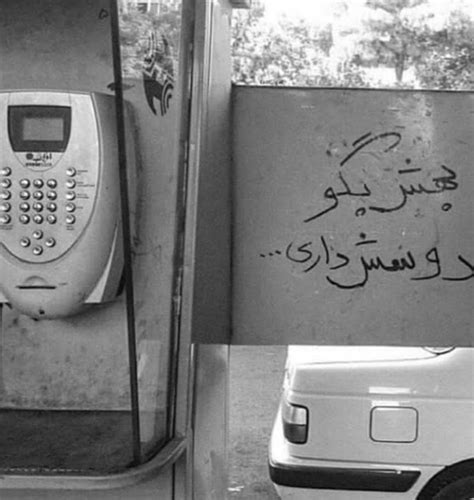 بهش بگو
دوسش داری...